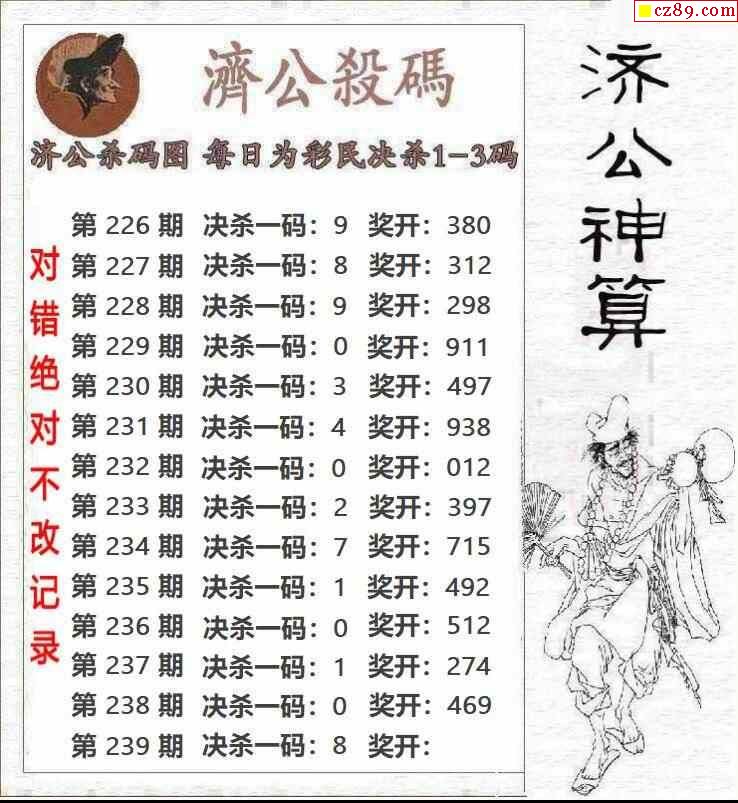 cz89.com
濟公殺碼
济公杀码图 每日为彩民决杀1-3码
济公神算
对错绝对不改记录
第 226 期 决杀一码：9 奖开：380
第 227 期 决杀一码：8 奖开：312
第 228 期 决杀一码：9 奖开：298
第 229 期 决杀一码：0 奖开：911
第 230 期 决杀一码：3 奖开：497
第 231 期 决杀一码：4 奖开：938
第 232 期 决杀一码：0 奖开：012
第 233 期 决杀一码：2 奖开：397
第 234 期 决杀一码：7 奖开：715
第 235 期 决杀一码：1 奖开：492
第 236 期 决杀一码：0 奖开：512
第 237 期 决杀一码：1 奖开：274
第 238 期 决杀一码：0 奖开：469
第 239 期 决杀一码：8 奖开：